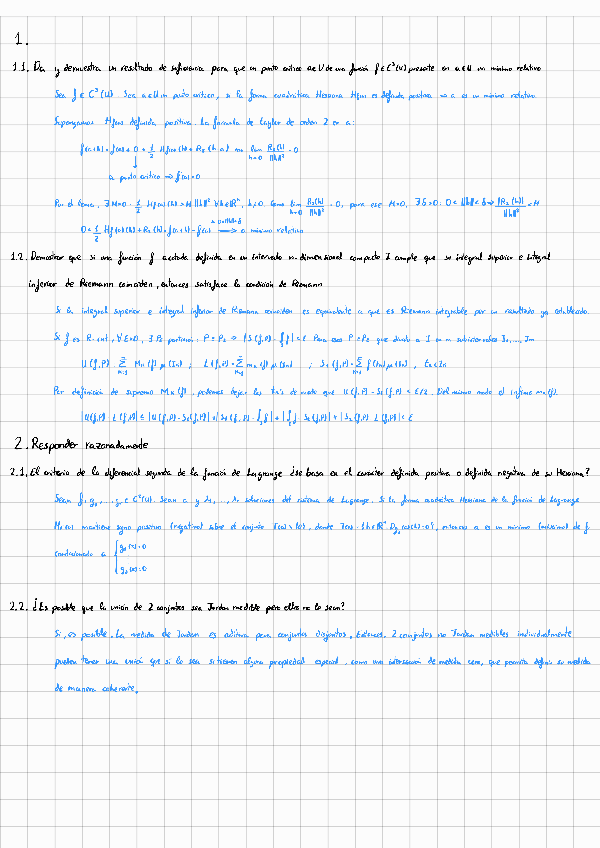 1.
1.1. Da y demuestra un resultado de suficiencia para que un punto crítico a∈U de una función f∈C²(U) presente en a∈U un mínimo relativo
Sea f∈C²(U). Sea a∈U un punto crítico, si la forma cuadrática Hessiana Hf(a) es definida positiva ⇒ a es un mínimo relativo
Supongamos Hf(a) definida positiva. La fórmula de Taylor de orden 2 en a:
f(a+h) = f(a) + 0 + 1/2 Hf(a)(h) + R₂(h,a) lim h→0 R₂(h)/||h||² = 0
a punto crítico ⇒ f'(a)=0
Por el lema, ∃M>0 : 1/2 Hf(a)(h) > M||h||² ∀h∈ℝⁿ, h≠0. Como lim h→0 R₂(h)/||h||² = 0, para ese M>0, ∃δ>0 : 0<||h||<δ ⇒ |R₂(h)|/||h||² < M
0 < 1/2 Hf(a)(h) + R₂(h) = f(a+h) - f(a) → a mínimo relativo
1.2. Demostrar que si una función f acotada definida en un intervalo n-dimensional compacto I cumple que su integral superior e integral
inferior de Riemann coinciden, entonces satisface la condición de Riemann
Si la integral superior e integral inferior de Riemann coinciden es equivalente a que es Riemann integrable por un resultado ya establecido.
Si f es R-int, ∀ε>0, ∃Pε partición : P ⊃ Pε ⇒ |S(f,P) - ∫f| < ε Para esos P ⊃ Pε que divide a I en m subintervalos I₁,..., Im
U(f,P) = Σ Mk(f) μ(Ik) ; L(f,P) = Σ mk(f) μ(Ik) ; S₁(f,P) = Σ f(tk) μ(Ik), tk∈Ik
Por definición de supremo Mk(f), podemos elegir los tk's de modo que U(f,P) - S₁(f,P) < ε/2. Del mismo modo el ínfimo mk(f).
|U(f,P) - L(f,P)| ≤ |U(f,P) - S₁(f,P)| + |S₁(f,P) - ∫f| + |∫f - S₂(f,P)| + |S₂(f,P) - L(f,P)| < ε
2. Responder razonadamente
2.1. El criterio de la diferencial segunda de la función de Lagrange ¿se basa en el carácter definida positiva o definida negativa de su Hessiana?
Sean f, g₁,...,gr ∈ C²(U). Sean a y λ₁,...,λr soluciones del sistema de Lagrange. Si la forma cuadrática Hessiana de la función de Lagrange
mantiene signo positivo (negativo) sobre el conjunto T(a)\{0}, donde T(a) = {h∈ℝⁿ Dg(a)(h)=0}, entonces a es un mínimo (máximo) de f
condicionado a
2.2. ¿Es posible que la unión de 2 conjuntos sea Jordan medible pero ellos no lo sean?
Sí, es posible. La medida de Jordan es aditiva para conjuntos disjuntos. Entonces, 2 conjuntos no Jordan medibles individualmente
pueden tener una unión que sí lo sea si tienen alguna propiedad especial, como una intersección de medida cero, que permita definir su medida
de manera coherente.